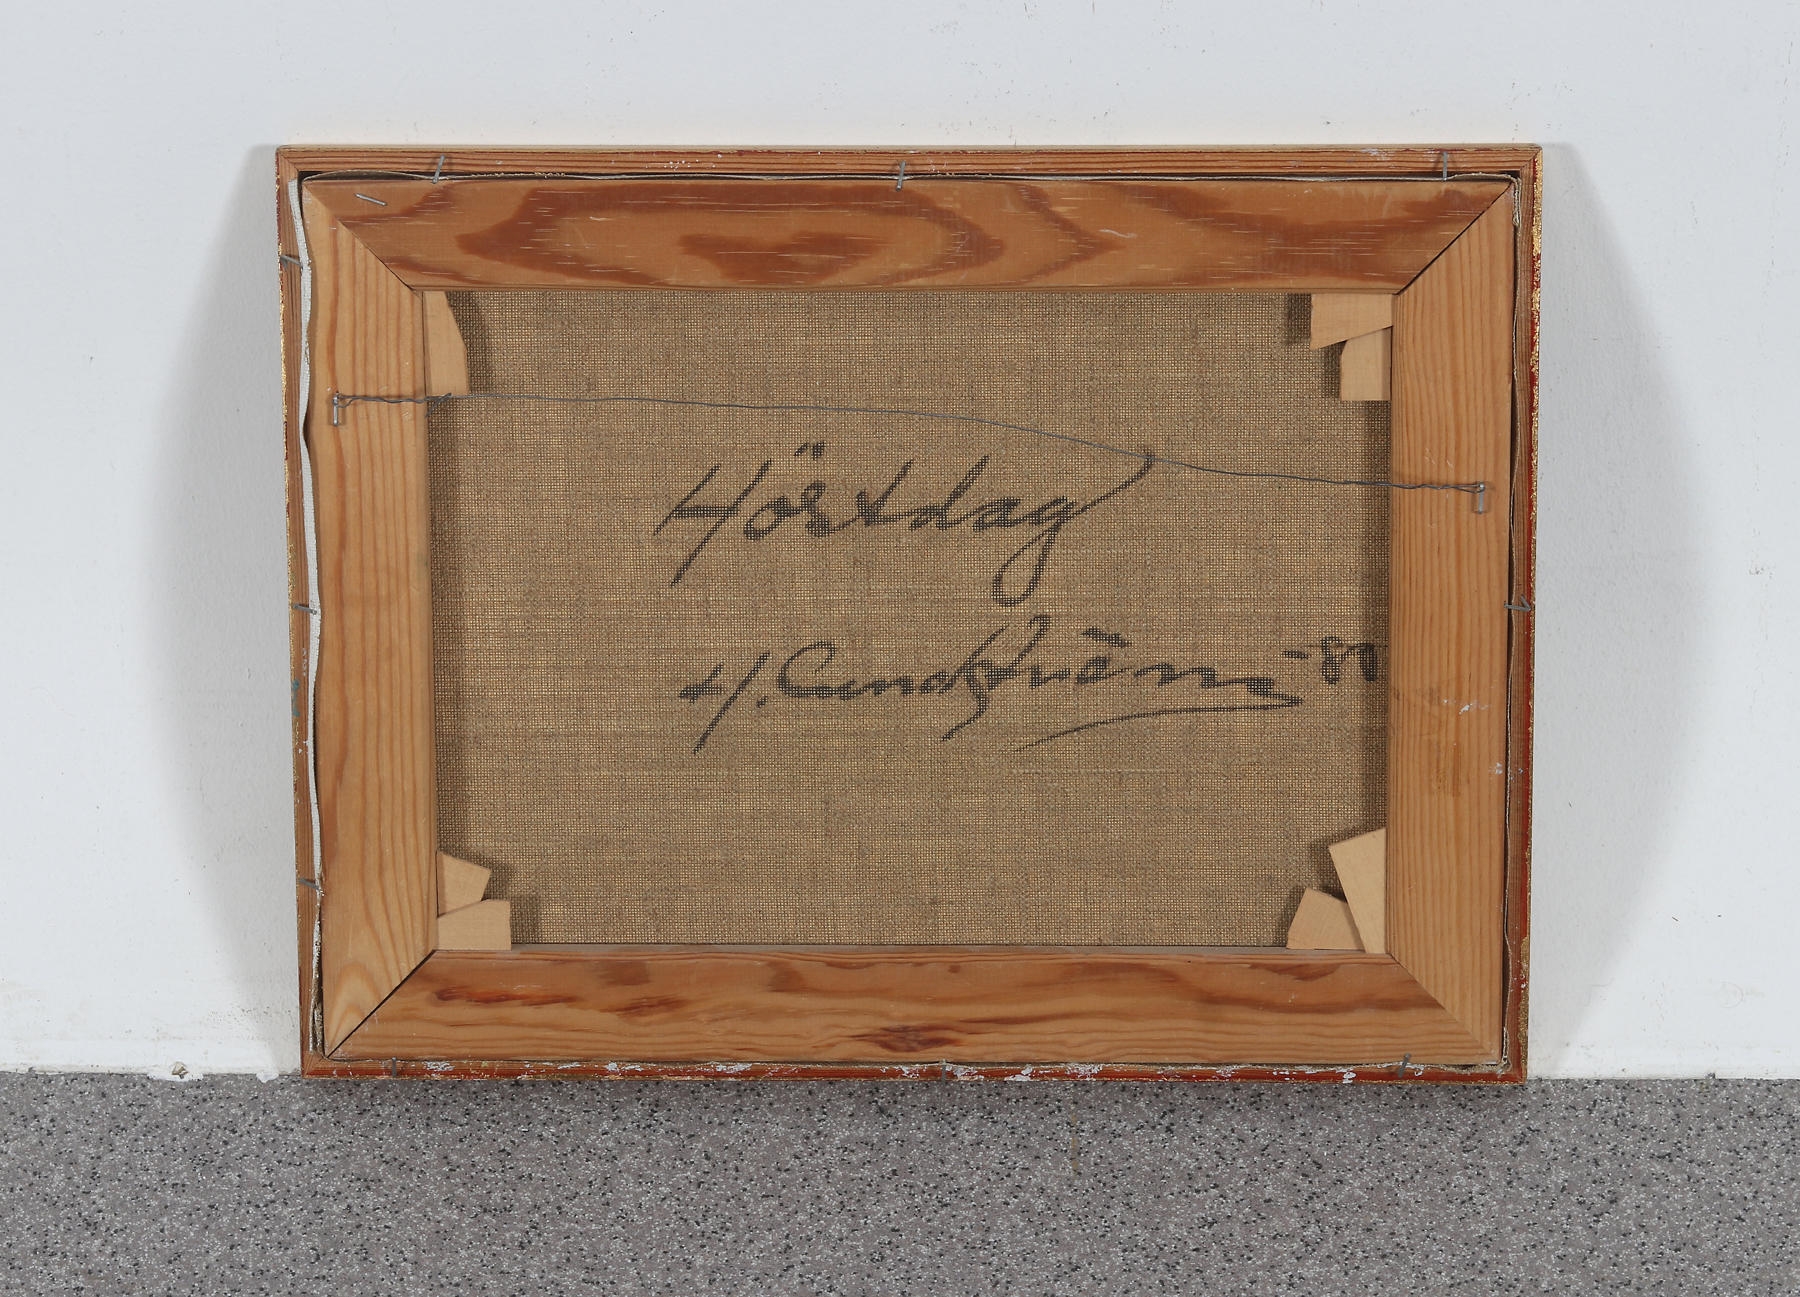 Höstdag
H. Lindström -80